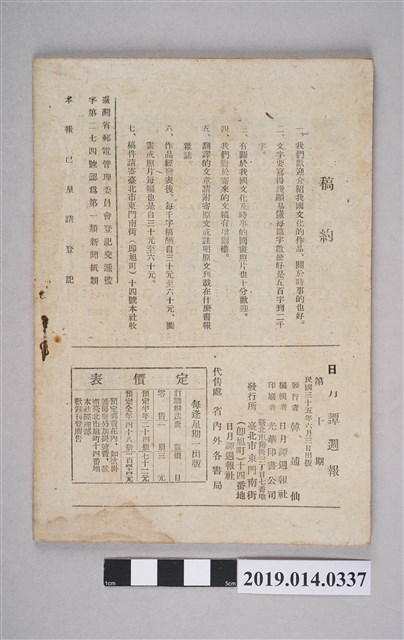 稿約
一、我們歡迎介紹我國文化的作品，關於時事的也好。
二、文字要寫得淺顯易懂每篇字數最好是五百字到二千
字。
三、有關於我國文化及時事的圖畫照片也十分歡迎。
四、我們對於寄來的文稿有增刪權。
五、翻譯的文章請附寄原文或註明原文刊載在什麼書報
雜誌。
六、作品經發表後，每千字稿酬自三十元至六十元，圖
畫或照片每幅也是自三十元至六十元。
七、稿件請寄臺北市東門南街（即旭町）十四號本社收
臺灣省郵電管理委員會登記交遞號
字第二七四號認為第一類新聞紙類
本報已呈請登記
日月潭週報
第十期
民國三十五年六月三日出版
發行者 韓逋仙
編輯者 日月潭週報社
印刷者 光華印書公司
發行所 臺北市東門南街
（即旭町）十四番地
日月潭週報社
代售處 省內外各書局
每逢星期一出版
定價表
訂購辦法 費 價 目
零售 一期 三元
預定半年 二十四期 七十二元
預定全年 四十八期 一百四十四元